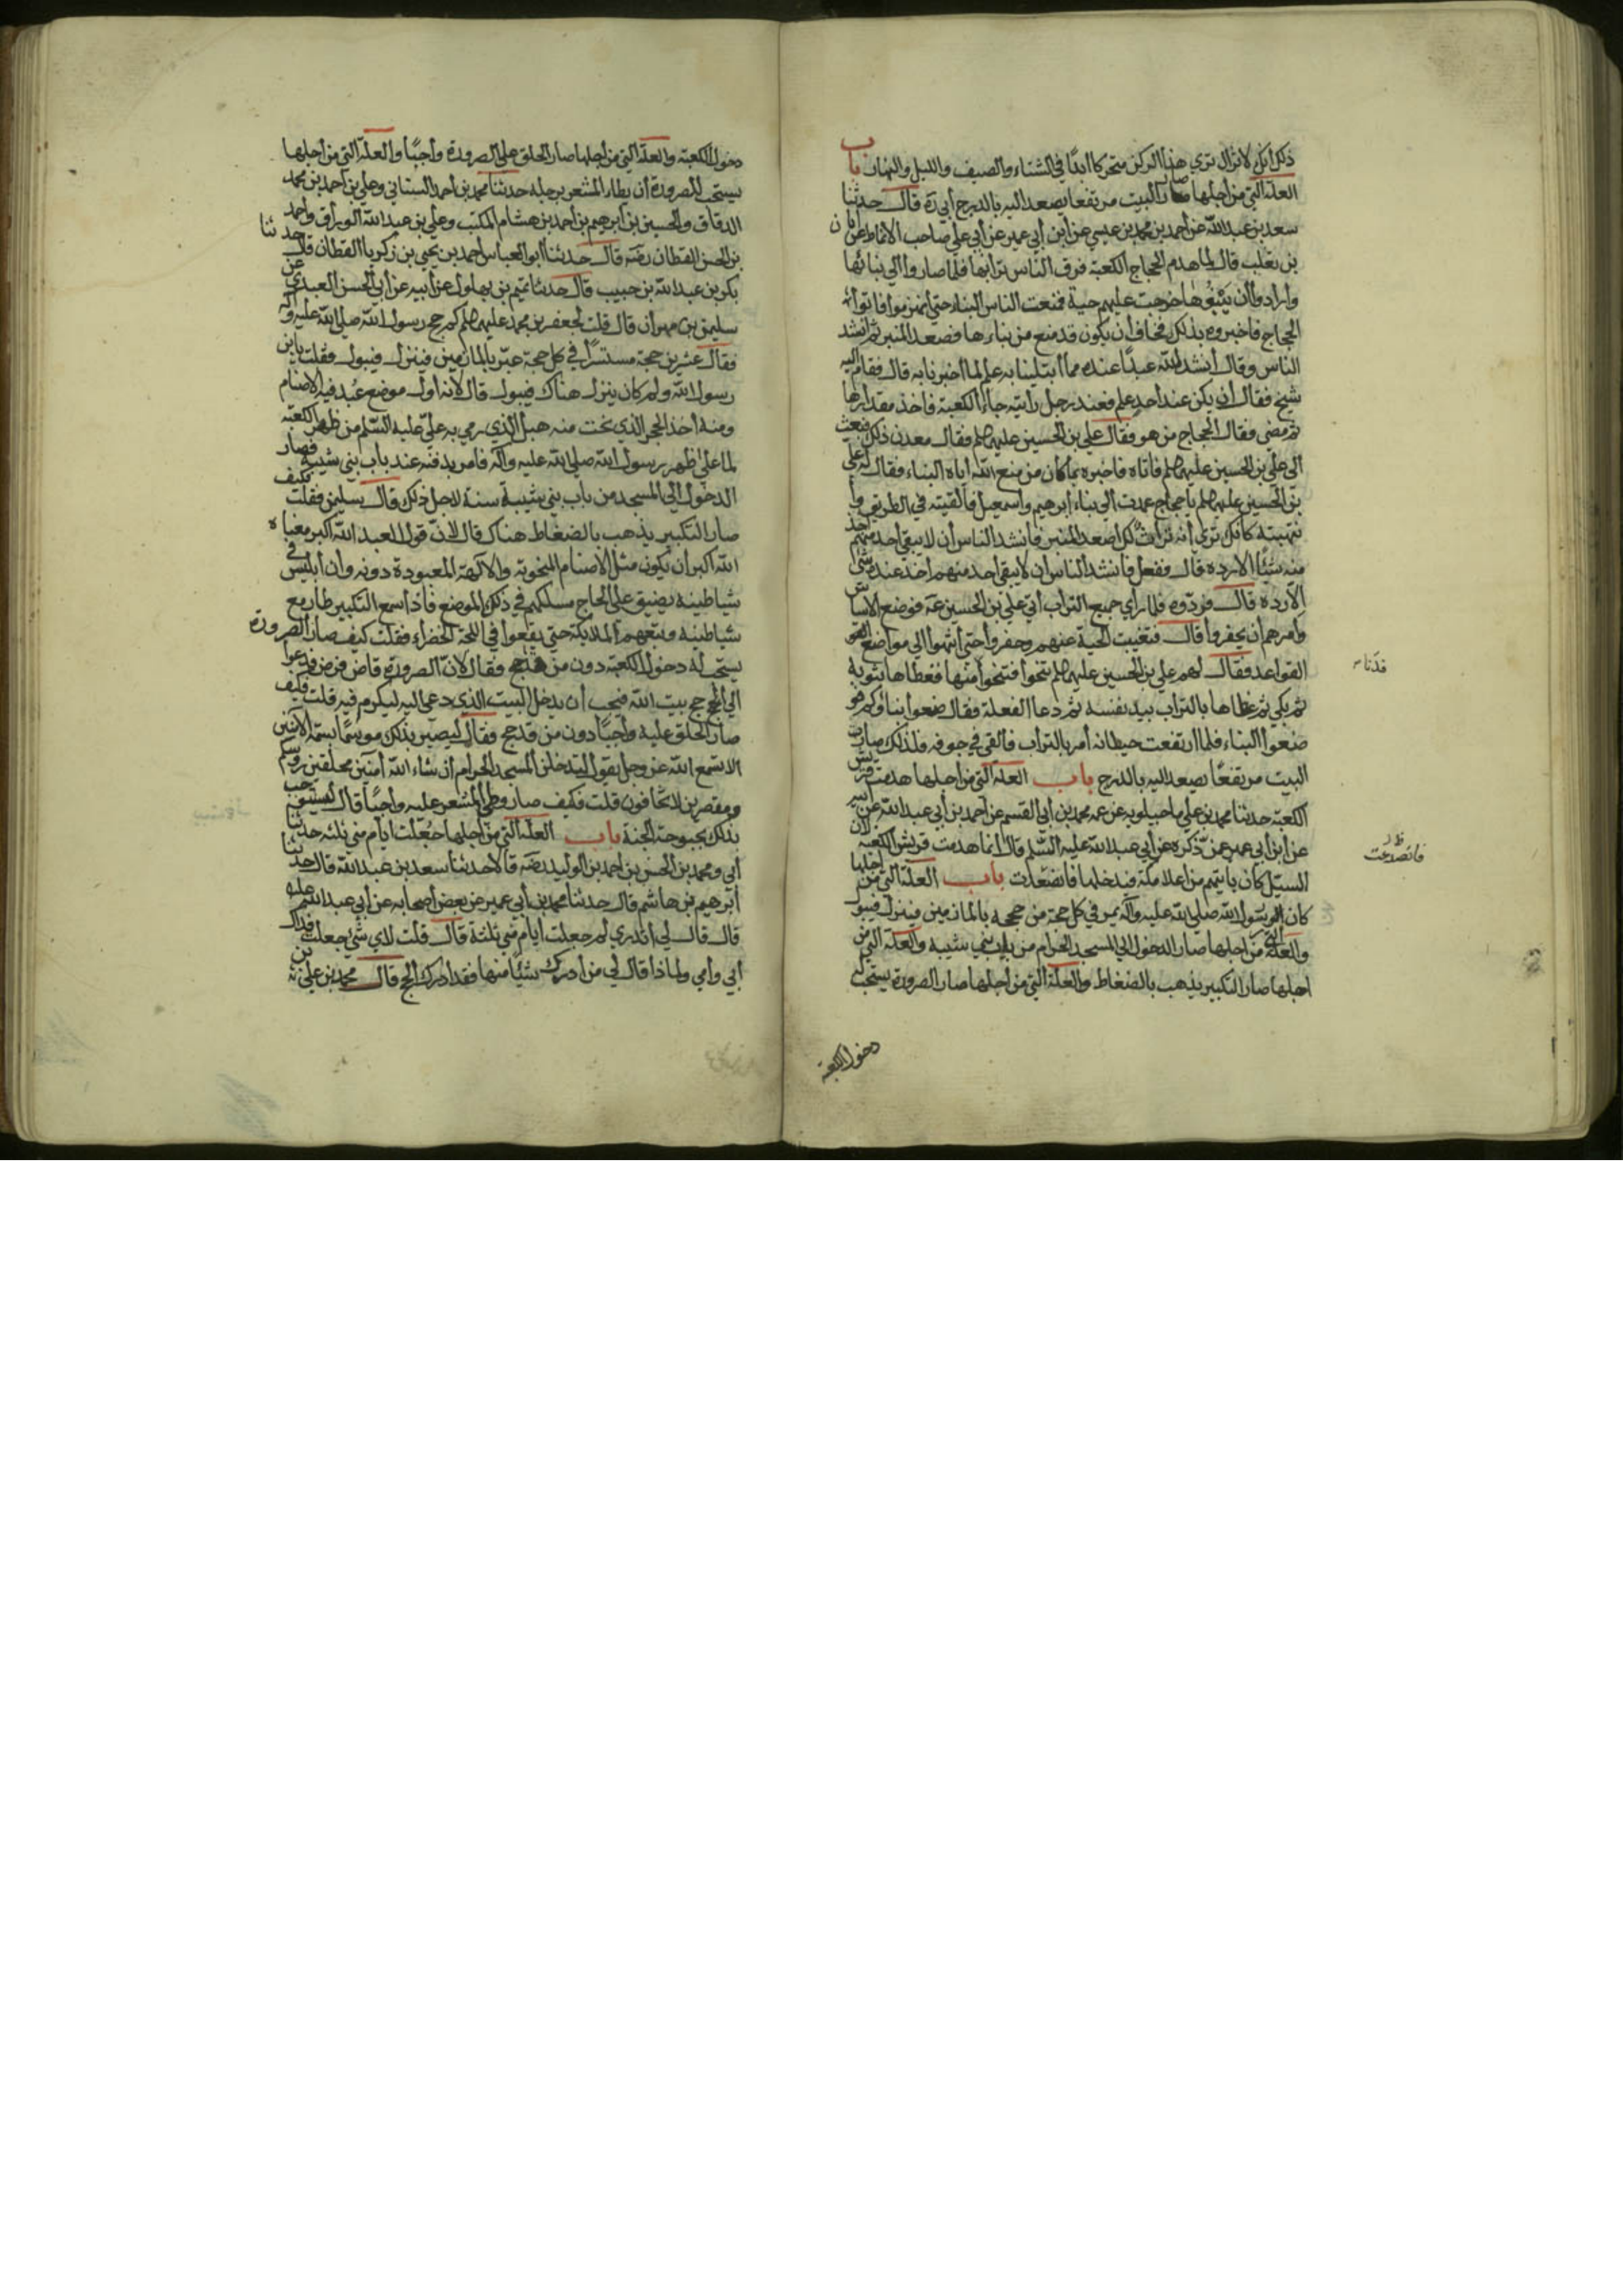 ذلك انك لا تزال تري هذا الركن متحركا ابدًا في الشتاء والصيف والليل والنهار باب
العلة التي من اجلها صار البيت مرتفعا يصعد اليه بالدرج أبي ره قال حدثنا
سعد بن عبد الله عن أحمد بن محمد بن عيسي عن ابن أبي عمير عن أبي علي صاحب الانماط عن ابان
بن تغلب قال لما هدم الحجاج الكعبة فرق الناس ترابها فلما صاروا الي بنائها
وارادوا أن يبنوها خرجت عليهم حية فمنعت الناس البناء حتي انهزموا فاتوا
الحجاج فاخبروه بذلك فخاف أن يكون قد منع من بناءها فصعد المنبر ثم أنشد
الناس وقال أنشد الله عبدًا عنده مما أبتلينا به علم لما أخبرنا به قال فقام اليه
شيخ فقال ان يكن عند أحد علم فعند رجل رأيته جاء الكعبة فاخذ مقدارها
ثم مضي فقال الحجاج من هو فقال علي بن الحسين عليهما فقال معدن ذلك فبعث
الي علي بن الحسين عليهما فاتاه فاخبره بما كان من منع الله اياه البناء فقال له علي
بن الحسين عليهما يا حجاج عمدت الي بناء ابرهيم واسمعيل فالقيته في الطريق وا
نتهبته كانك تري أنه تراث لك اصعد المنبر فأنشد الناس أن لا يبقي احد منهم اخذ
منه شيئًا الا رده قال ففعل فانشد الناس ان لا يبقي احد منهم اخذ عنده شئ
الا رده قال فردّوه فلما رأي جميع التراب أتي علي بن الحسين فوضع الاساس
وأمرهم ان يحفروا قال فتغيبت الحية عنهم وحفروا حتي انتهوا الي مواضع
القواعد فقال لهم علي بن الحسين عليهما تنحوا فتنحوا فدنا منها فغطاها بثوبه
ثم بكي ثم غطاها بالتراب بيد نفسه ثم دعا الفعلة فقال ضعوا بناؤكم
ضعوا البناء فلما ارتفعت حيطانه أمر بالتراب فالقي في جوفه فلذلك صار
البيت مرتفعًا يصعد اليه بالدرج باب العلة التي من اجلها هدمت قريش
الكعبة حدثنا محمد بن علي ماجيلويه عن عمه محمد بن أبي القسم عن أحمد بن أبي عبد الله عن أبيه
عن ابن أبي عمير عمن ذكره عن أبي عبد الله عليه السلم قال انما هدمت قريش الكعبة لان
السيل كان ياتيهم من اعلا مكة فيدخلها فانصدعت باب العلة التي من اجلها
كان رسول الله صلي الله عليه وآله يمر في كل حجة من حججه بالمازمين فينزل فيبول
والعلة التي من اجلها صار الدخول الي المسجد الحرام من باب بني شيبة والعلة التي من
اجلها صار التكبير يذهب بالضغاط والعلة التي من أجلها صار الصرورة يستحب له
دخول الكعبة
فدنا
ظ فانصدعت
دخول الكعبة والعلة التي من اجلها صار الحلق علي الصرورة واجبًا والعلة التي من أجلها
يستحب للصرورة أن يطاء المشعر برجله حدثنا محمد بن أحمد السناني وعلي بن أحمد بن محمد
الدقاق والحسين بن ابرهيم بن أحمد بن هشام المكتب وعلي بن عبد الله الوراق واحمد
بن الحسن القطان قال حدثنا أبو العباس احمد بن يحيي بن زكريا القطان قال حدثنا
بكر بن عبد الله بن حبيب قال حدثنا تميم بن بهلول عن أبيه عن أبي الحسن العبدي عن
سليمن بن مهران قال قلت لجعفر بن محمد عليهما كم حج رسول الله صلي الله عليه وآله
فقال عشرين حجة مستسرًا في كل حجة يمر بالمازمين فينزل فيبول فقلت يا بن
رسول الله ولم كان ينزل هناك فيبول قال لانه أول موضع عُبد فيه الاصنام
ومنه أخذ الحجر الذي نحت منه هبل الذي رمي به علي عليه السلم من ظهر الكعبة
لما علي ظهر رسول الله صلي الله عليه وآله فامر بدفنه عند باب بني شيبة فصار
الدخول الي المسجد من باب بني شيبة سنة لاجل ذلك قال سليمن فقلت فكيف
صار التكبير يذهب بالضغاط هناك قال لان قول العبد الله اكبر معناه
الله اكبر أن يكون مثل الاصنام المنحوتة والآلهة المعبودة دونه وان ابليس في
شياطينه يضيق علي الحاج مسلكهم في ذلك الموضع فاذا سمع التكبير طار مع
شياطينه وتبعهم الملائكة حتي يقعوا في اللجة الخضراء فقلت كيف صار الصرورة
يستحب له دخول الكعبة دون من قد حج فقال لان الصرورة قاض فرض مدعوا
الي حج بيت الله فيجب أن يدخل البيت الذي دعي اليه ليكرم فيه قلت فكيف
صار الحلق عليه واجبًا دون من قد حج فقال ليصير بذلك موسمًا بسمة الآمنين
الا تسمع الله عز وجل يقول لتدخلن المسجد الحرام ان شاء الله آمنين محلقين روسكم
ومقصرين لا تخافون قلت فكيف صار وطي المشعر عليه واجبًا قال ليستوجب
بذلك بحبوحة الجنة باب العلة التي من أجلها جُعلت ايام مني ثلثة حدثنا
أبي ومحمد بن الحسن بن احمد بن الوليد قالا حدثنا سعد بن عبد الله قال حدثنا
ابرهيم بن هاشم قال حدثنا محمد بن أبي عمير عن بعض أصحابه عن أبي عبد الله عليه
قال قال لي اتدري لم جعلت ايام مني ثلثة قال قلت لاي شئ جعلت فداك
أبي وأمي ولماذا قال لي من أدرك شيئًا منها فقد ادرك الحج قال محمد بن علي بن